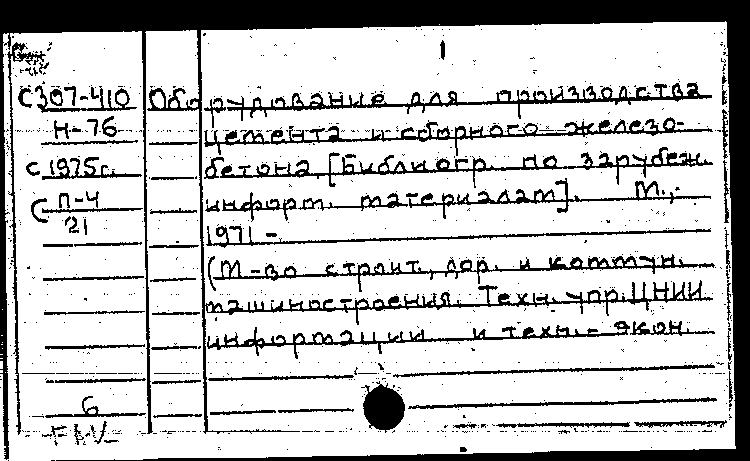 1
С307-410 Оборудование для производства
Н-76 цемента и сборного железо-
с 1975г. бетона [Библиогр. по зарубеж.
С П-4 информ. материалам]. М.,-
21 1971 -
(М-во строит., дор. и коммун.
машиностроения. Техн. упр. ЦНИИ
информации и техн.- экон.
6